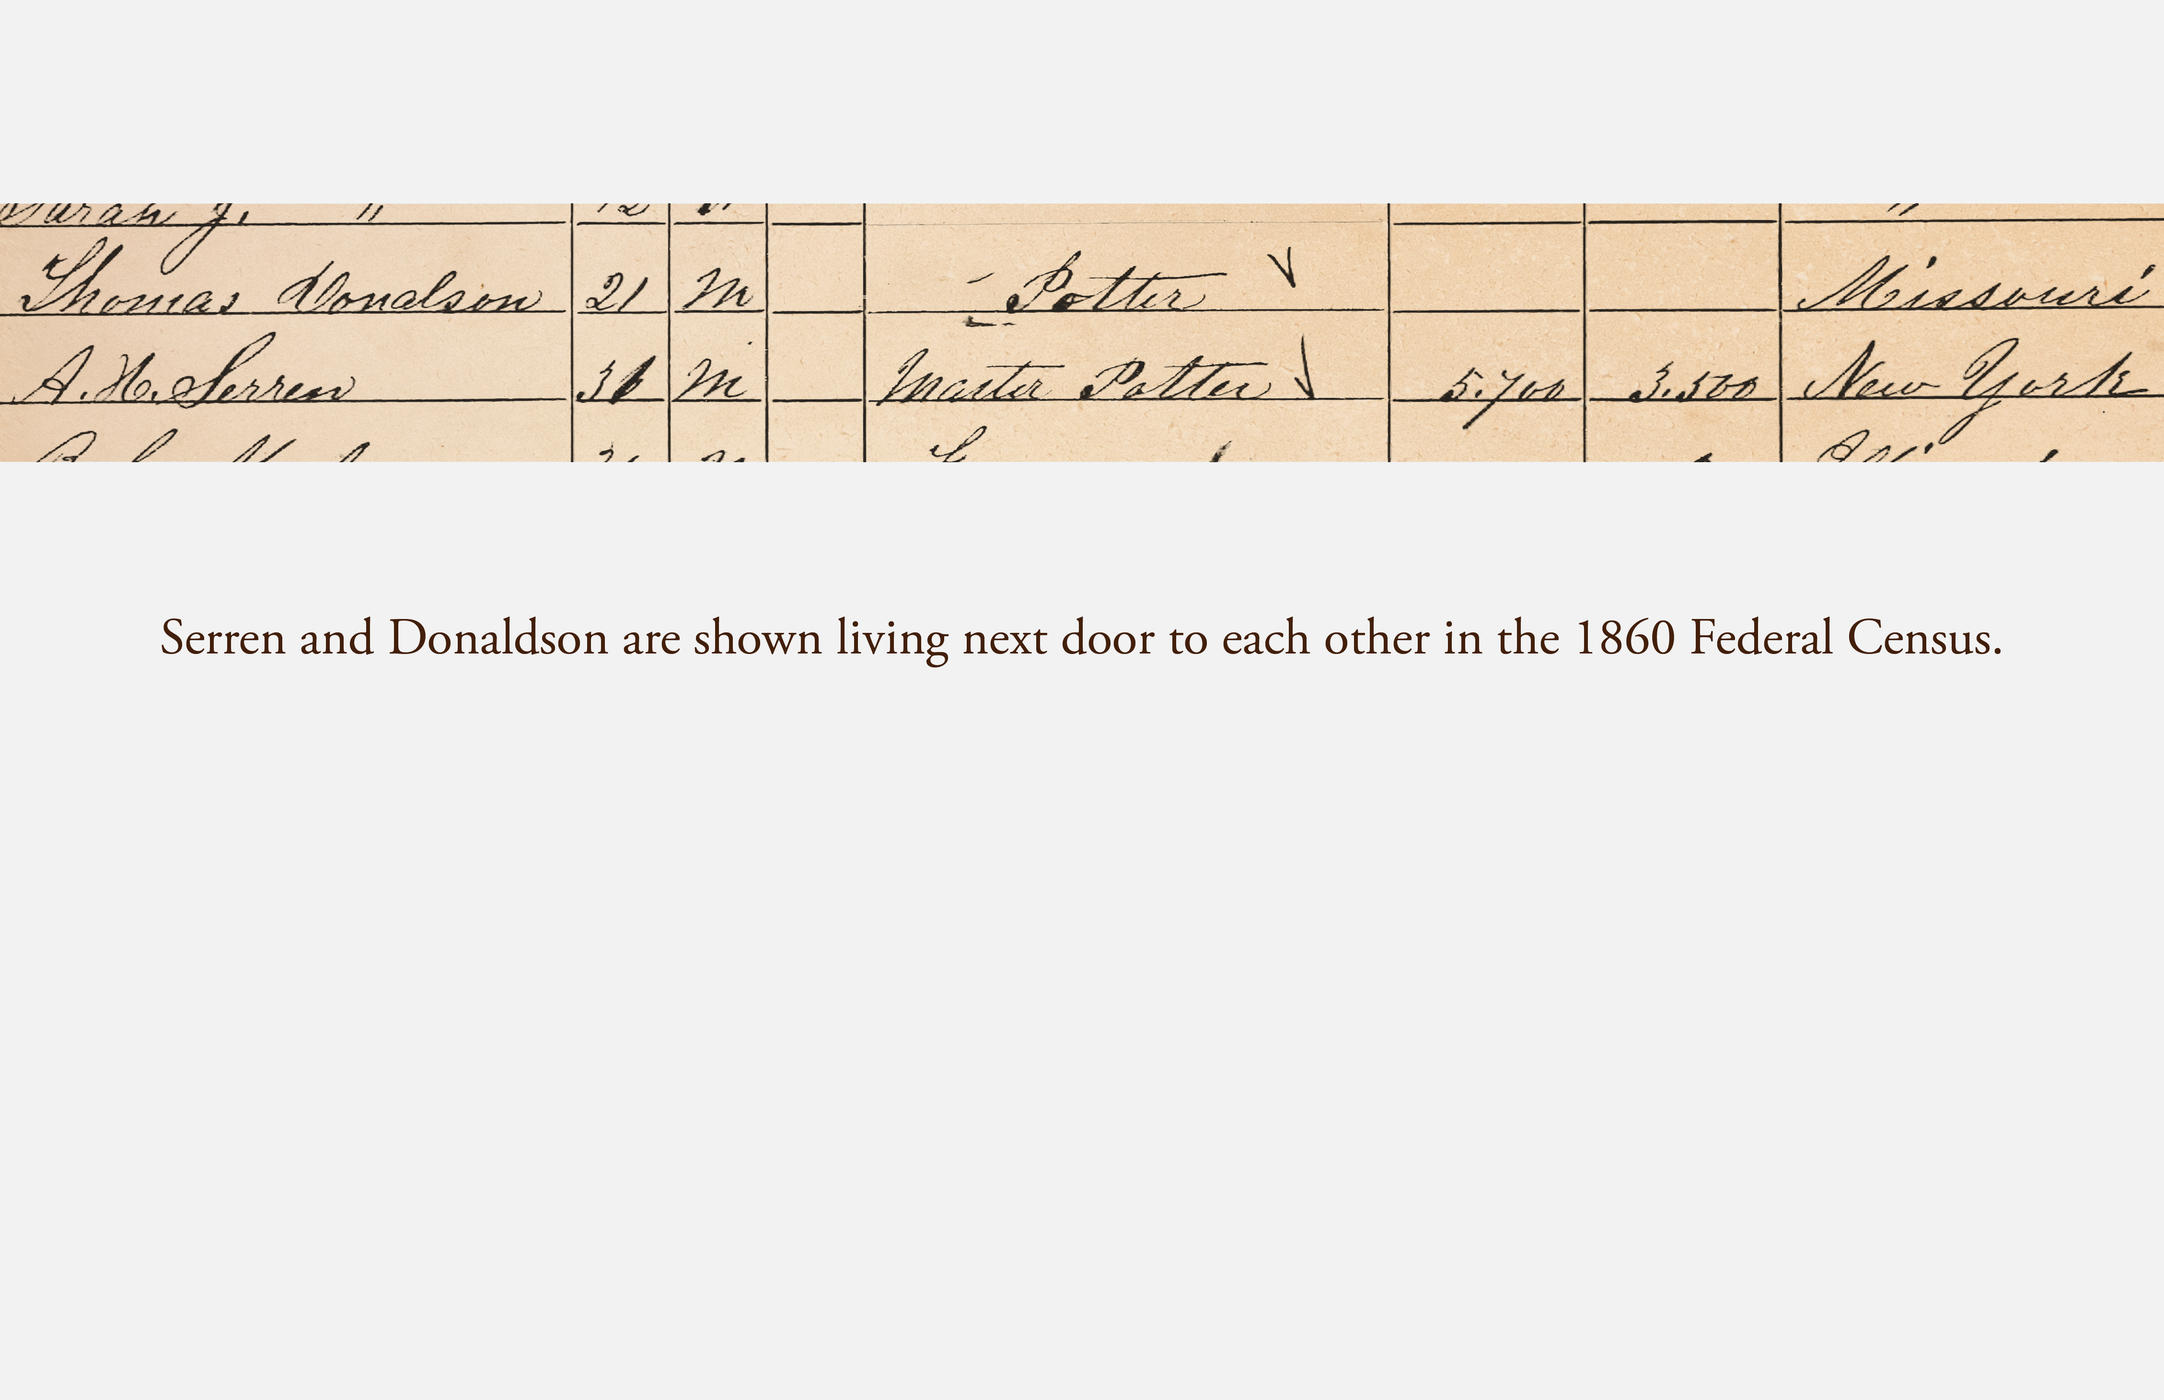 Sarah J. " 12 "
Thomas Donalson 21 M Potter Missouri
A. H. Serren M Master Potter 5.700 3.500 New York
Serren and Donaldson are shown living next door to each other in the 1860 Federal Census.